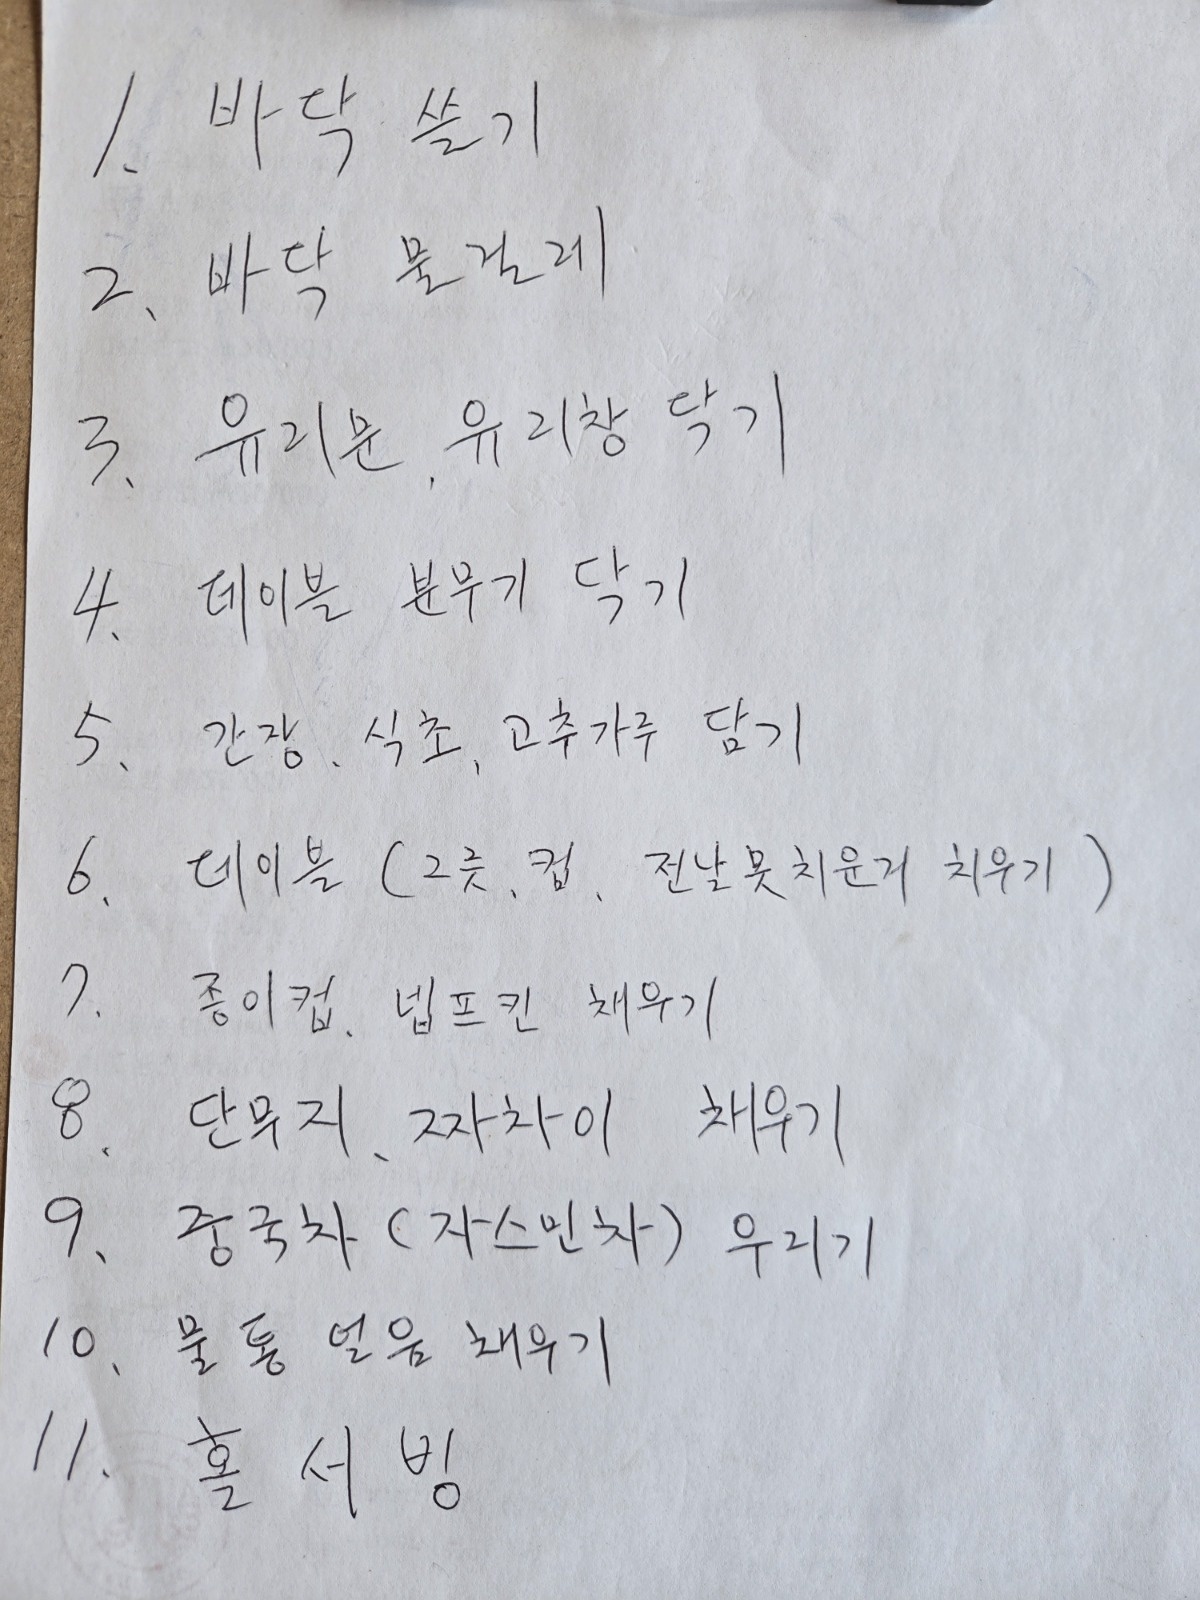 1. 바닥 쓸기
2. 바닥 물걸레
3. 유리문, 유리창 닦기
4. 테이블 분무기 닦기
5. 간장, 식초, 고추가루 담기
6. 테이블 (그릇, 컵, 전날못치운거 치우기)
7. 종이컵, 넵프킨 채우기
8. 단무지, 짜차이 채우기
9. 중국차 (자스민차) 우리기
10. 물통 얼음 채우기
11. 홀 서빙